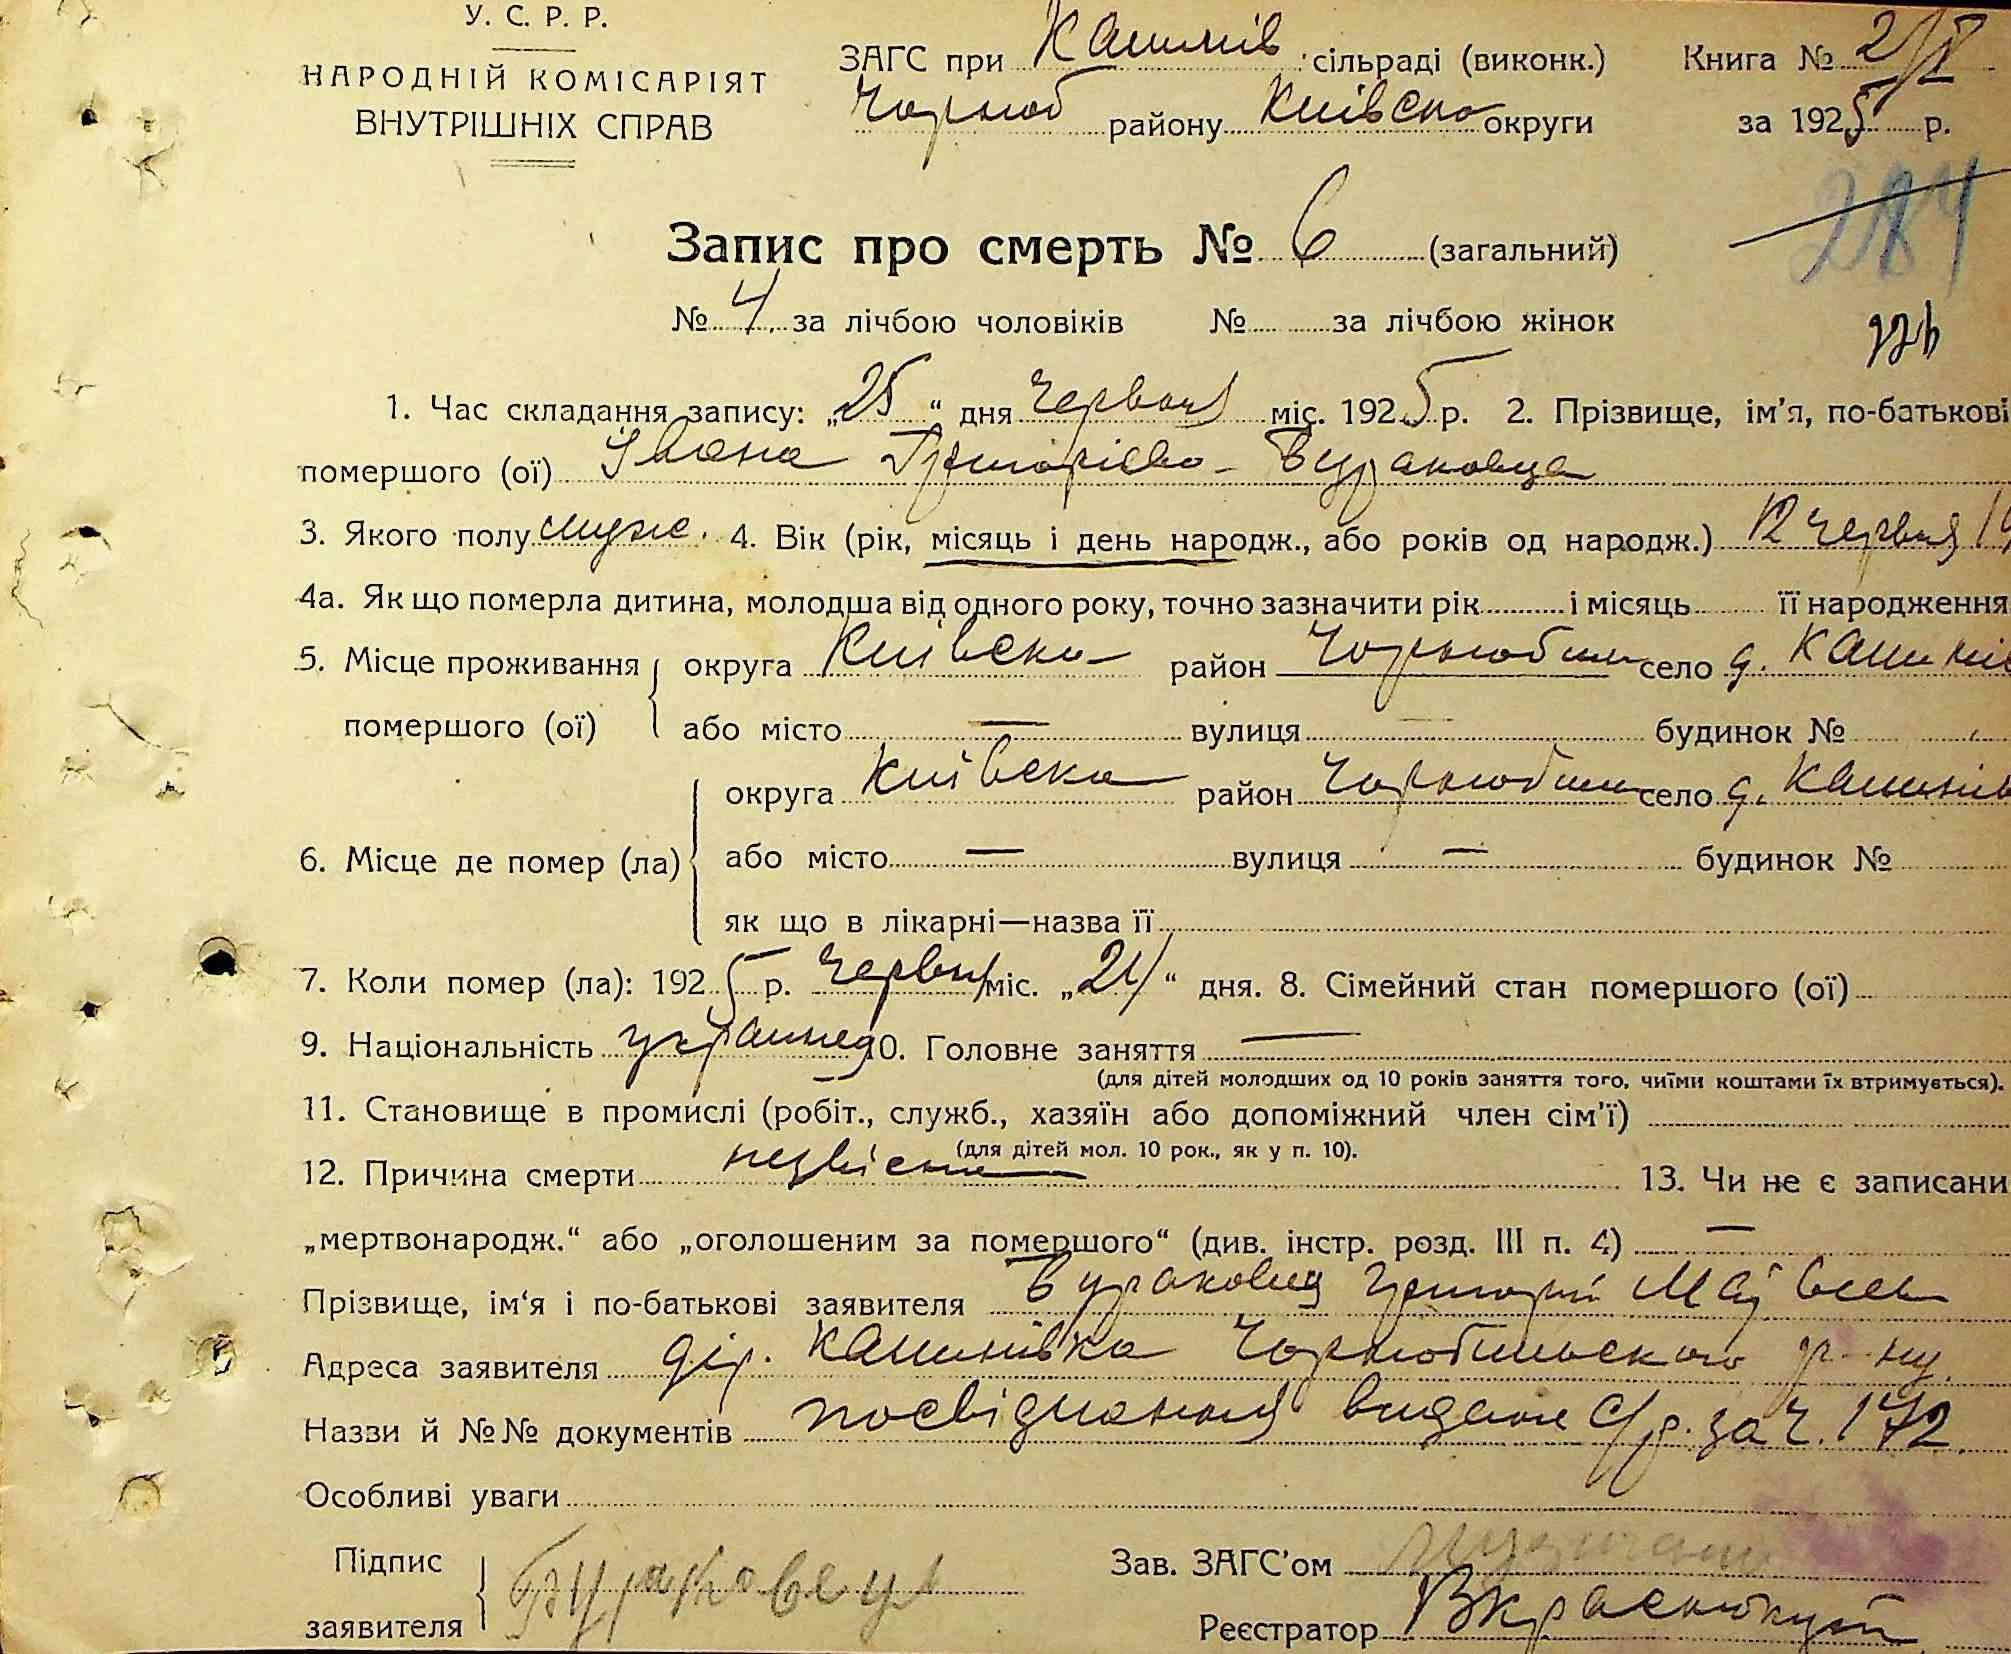 У. С. Р. Р.
НАРОДНІЙ КОМІСАРІЯТ
ВНУТРІШНІХ СПРАВ
ЗАГС при Каминів сільраді (виконк.)
Чорноб району Київсько округи
Книга № 2/I
за 1925 р.
284
Запис про смерть № 6 (загальний)
№ 4 за лічбою чоловіків № за лічбою жінок
1. Час складання запису: „25“ дня Червня міс. 1925 р. 2. Прізвище, ім'я, по-батькові
помершого (ої) Івана Григорієво Бураковця
3. Якого полу муже. 4. Вік (рік, місяць і день народж., або років од народж.) 12 червня 19
4а. Як що померла дитина, молодша від одного року, точно зазначити рік і місяць її народження
5. Місце проживання помершого (ої) округа Київска район Чорнобил село д. Камин
або місто — вулиця — будинок №
6. Місце де помер (ла) округа Київска район Чорнобил село д. Каминів
або місто — вулиця — будинок №
як що в лікарні—назва її
7. Коли помер (ла): 1925 р. Червня міс. „24“ дня. 8. Сімейний стан помершого (ої)
9. Національність украинец 10. Головне заняття —
(для дітей молодших од 10 років заняття того, чиїми коштами їх втримується).
11. Становище в промислі (робіт., служб., хазяїн або допоміжний член сім'ї)
(для дітей мол. 10 рок., як у п. 10).
12. Причина смерти незвісна 13. Чи не є записани
„мертвонародж.“ або „оголошеним за помершого“ (див. інстр. розд. III п. 4) —
Прізвище, ім'я і по-батькові заявителя Бураковец Григорій
Адреса заявителя дер. Каминівка Чорнобильского р-ну
Назви й №№ документів посвідчання видане С/р. за ч. 172
Особливі уваги
Підпис заявителя Бураковец
Зав. ЗАГС'ом
Реєстратор В Краснокут